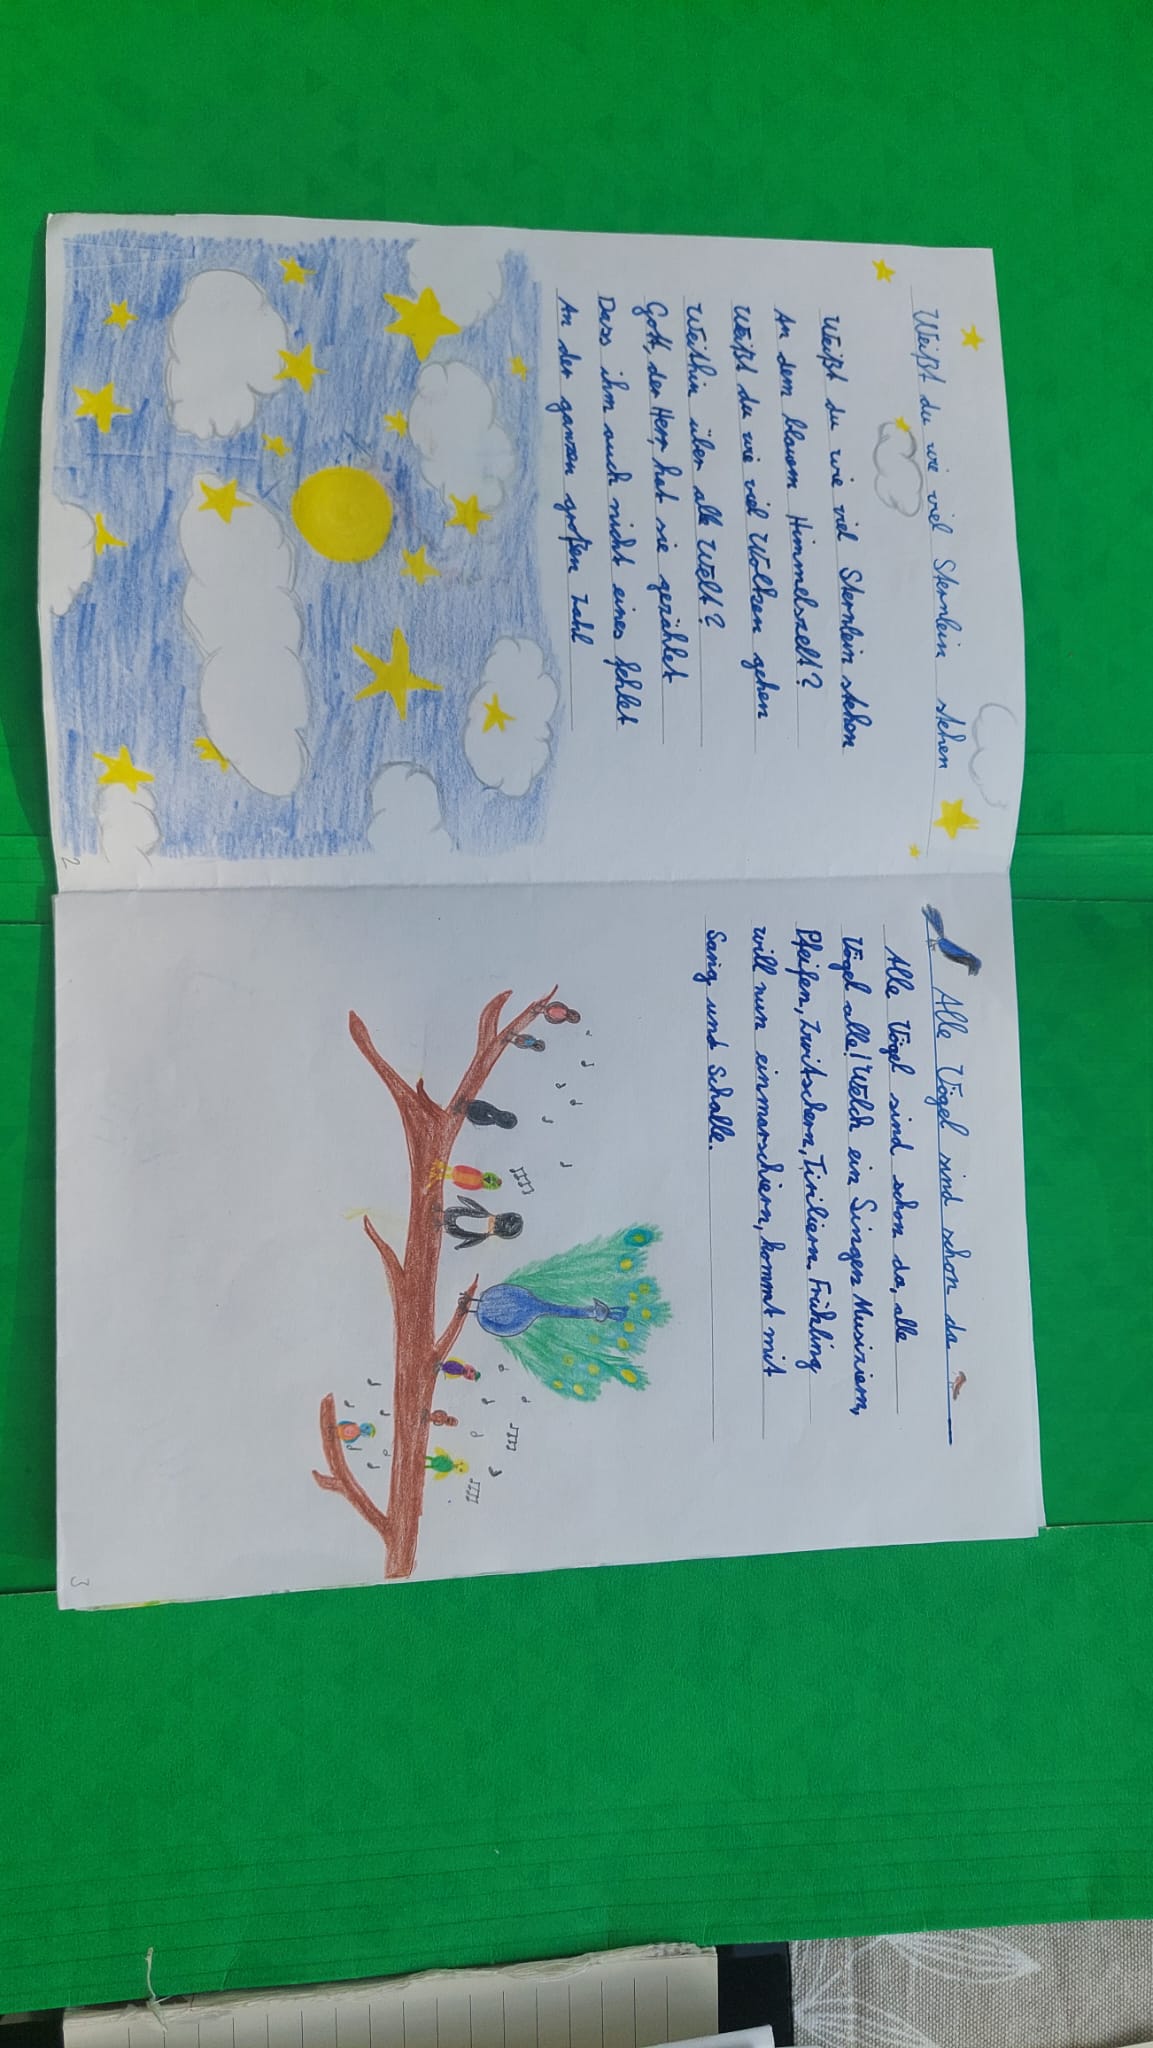 Weißt du wie viel Sternlein stehen
Weißt du wie viel Sternlein stehen
An dem blauem Himmelszelt?
Weißt du wie viel Wolken gehen
Weithin über alle Welt?
Gott, der Herr, hat sie gezählet
Dass ihm auch nicht eines fehlet
An der ganzen großen Zahl
2
Alle Vögel sind schon da
Alle Vögel sind schon da, alle
Vögel alle! Welch ein Singen Musiziern,
Pfeifen, Zwitschern, Tiriliern. Frühling
will nun einmarschiern, kommt mit
Sang und Schalle.
3